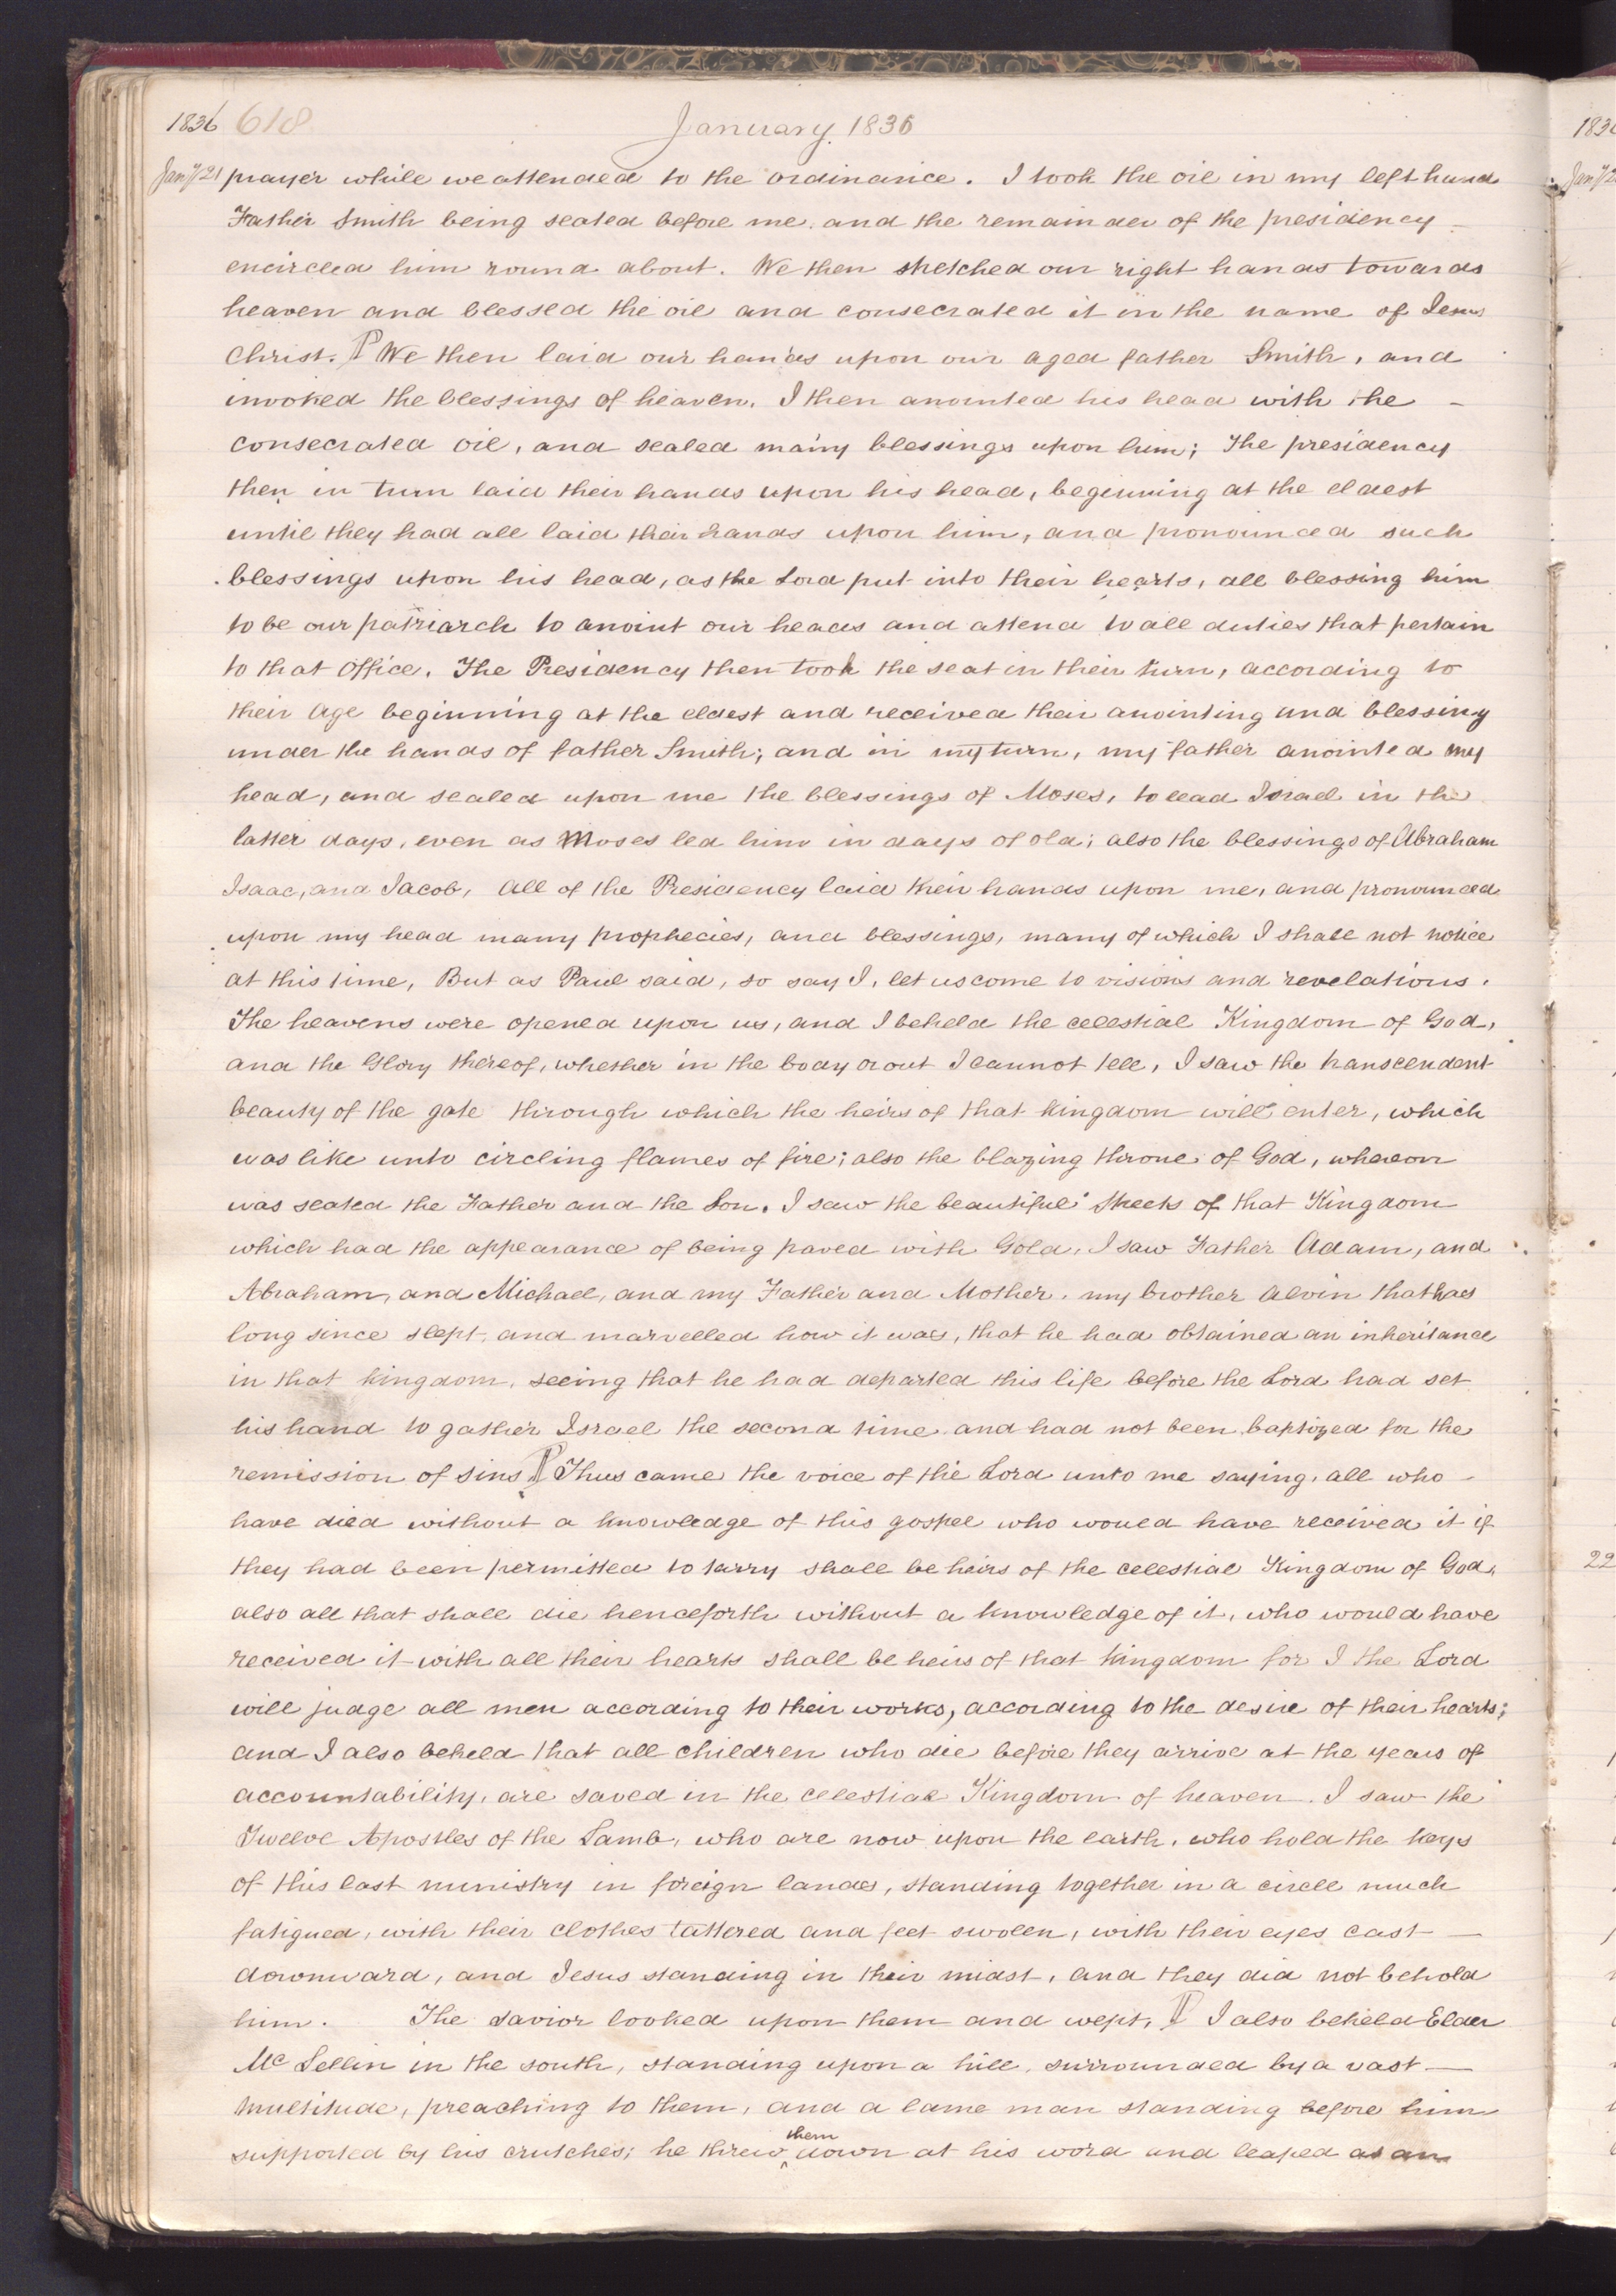 1836 618 January 1836
Jany 21 prayer while we attended to the ordinance. I took the oil in my left hand
Father Smith being seated before me, and the remainder of the presidency
encircled him round about. We then stretched our right hands towards
heaven and blessed the oil and consecrated it in the name of Jesus
Christ. ¶ We then laid our hands upon our aged father Smith, and
invoked the blessings of heaven. I then anointed his head with the
consecrated oil, and sealed many blessings upon him; The presidency
then in turn laid their hands upon his head, beginning at the eldest
until they had all laid their hands upon him, and pronounced such
blessings upon his head, as the Lord put into their hearts, all blessing him
to be our patriarch to anoint our heads and attend to all duties that pertain
to that office. The Presidency then took the seat in their turn, according to
their age beginning at the eldest and received their anointing and blessing
under the hands of father Smith; and in my turn, my father anointed my
head, and sealed upon me the blessings of Moses, to lead Israel in the
latter days, even as Moses led him in days of old; also the blessings of Abraham
Isaac, and Jacob, All of the Presidency laid their hands upon me, and pronounced
upon my head many prophecies, and blessings, many of which I shall not notice
at this time, But as Paul said, so say I, let us come to visions and revelations.
The heavens were opened upon us, and I beheld the celestial Kingdom of God,
and the Glory thereof, whether in the body or out I cannot tell, I saw the transcendent
beauty of the gate through which the heirs of that kingdom will enter, which
was like unto circling flames of fire; also the blazing throne of God, whereon
was seated the Father and the Son. I saw the beautiful streets of that Kingdom
which had the appearance of being paved with Gold, I saw Father Adam, and
Abraham, and Michael, and my Father and Mother, my brother Alvin that has
long since slept, and marvelled how it was, that he had obtained an inheritance
in that kingdom, seeing that he had departed this life before the Lord had set
his hand to gather Israel the second time and had not been baptized for the
remission of sins ¶ Thus came the voice of the Lord unto me saying, all who
have died without a knowledge of this gospel who would have received it if
they had been permitted to tarry shall be heirs of the celestial Kingdom of God,
also all that shall die henceforth without a knowledge of it, who would have
received it with all their hearts shall be heirs of that kingdom for I the Lord
will judge all men according to their works, according to the desire of their hearts;
and I also beheld that all children who die before they arrive at the years of
accountability, are saved in the celestial Kingdom of heaven. I saw the
Twelve Apostles of the Lamb, who are now upon the earth, who hold the keys
of this last ministry in foreign lands, standing together in a circle much
fatigued, with their clothes tattered and feet swolen, with their eyes cast
downward, and Jesus standing in their midst, and they did not behold
him. The Savior looked upon them and wept, ¶ I also beheld Elder
Mc Lellin in the south, standing upon a hill, surrounded by a vast
multitude, preaching to them, and a lame man standing before him
supported by his crutches; he threw them down at his word and leaped as an
183
Jany 2
22